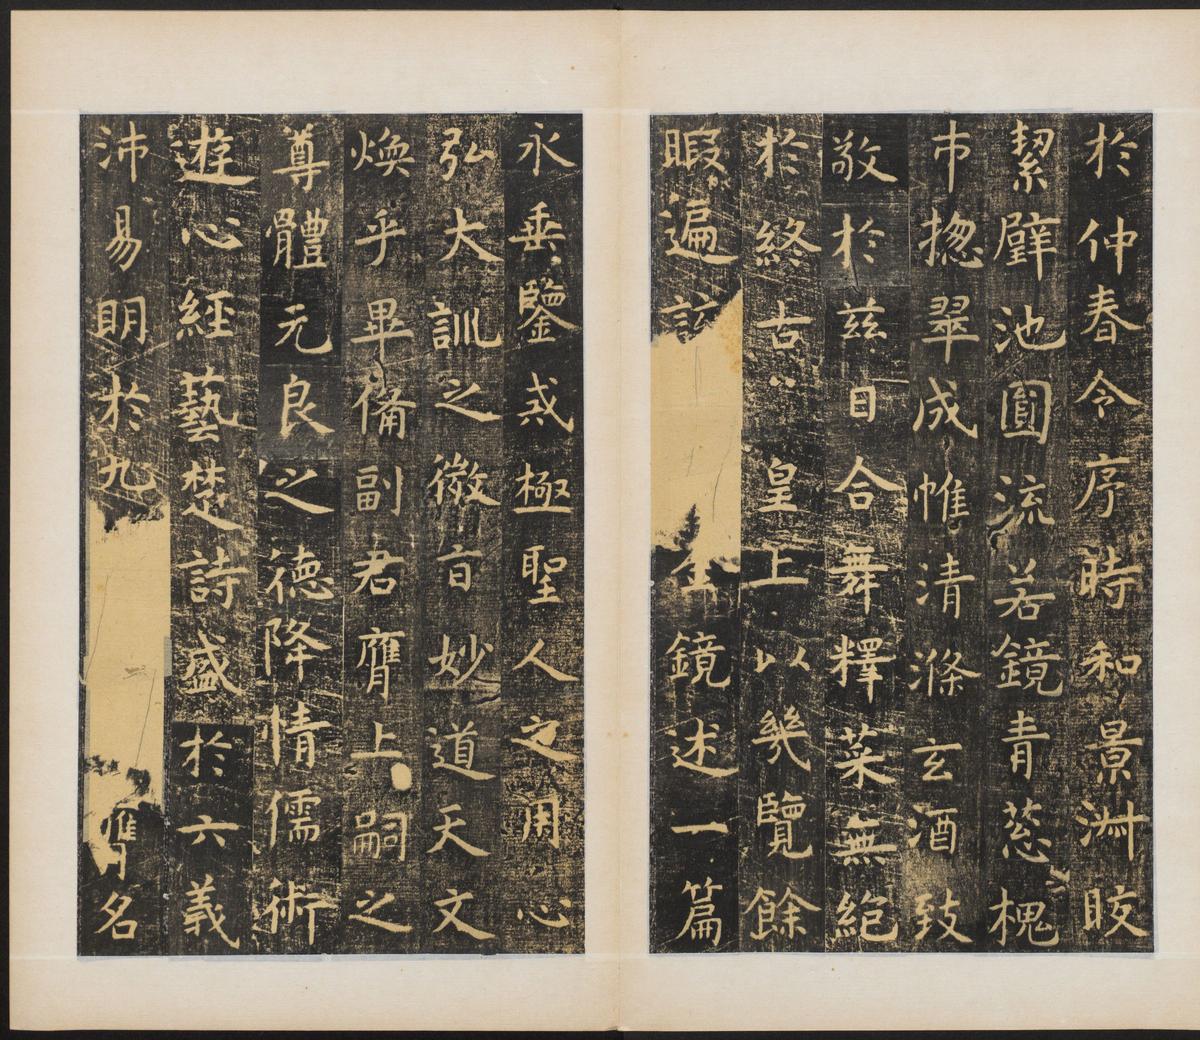 於仲春令序時和景淑晈
絜璧池圓流若鏡青葱槐
市揔翠成帷清滌玄酒致
敬於兹日合舞釋菜無絕
於終古皇上以幾覽餘
暇遍該金鏡述一篇
永垂鑒戒極聖人之用心
弘大訓之微旨妙道天文
煥乎畢備副君膺上嗣之
尊體元良之德降情儒術
遊心經藝楚詩盛於六義
沛易明於九雕名